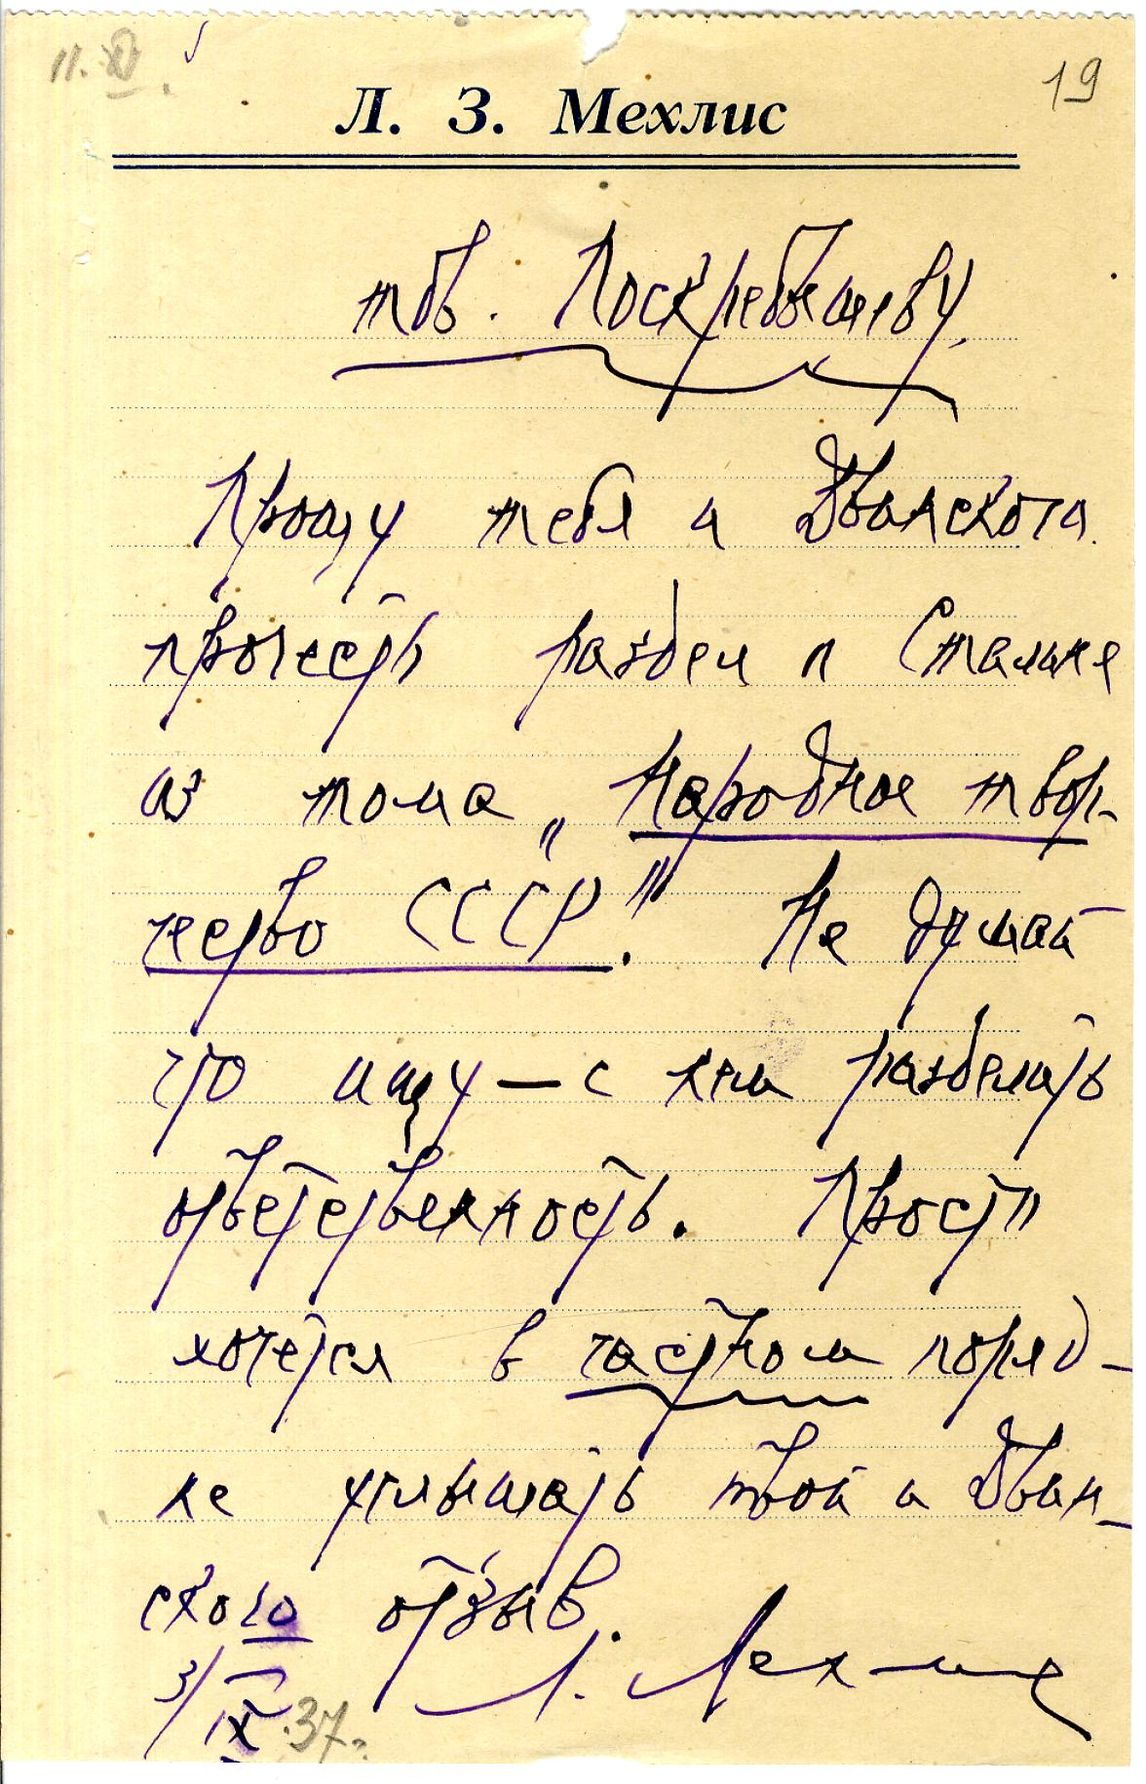 11. XI.
19
Л. З. Мехлис
тов. Поскребышеву.
Прошу тебя и Двинского
прочесть раздел о Сталине
из тома „Народное твор-
чество СССР". Не думай
что ищу — с кем разделить
ответственность. Просто
хочется в частном поряд-
ке услышать твой и Двин-
ского отзыв.
Л. Мехлис
3/X.37.